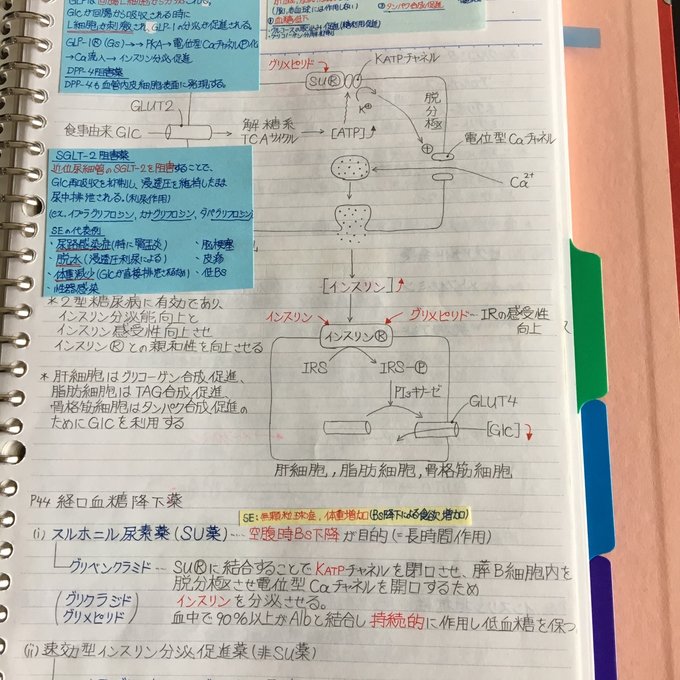 Glcが回腸から吸収される時に
L細胞が刺激され、GLP-1の分泌が促進される。
GLP-1Ⓡ(Gs)→PKA→電位型Caチャネル
→Ca流入→インスリン分泌促進
DPP-4阻害薬
DPP-4も血管内皮細胞表面に発現する。
②血糖低下
タンパク合成促進
グリメピリド
SUⓇ
KATPチャネル
K⊕
脱分極
GLUT2
食事由来Glc
解糖系
TCAサイクル
[ATP]↑
⊕
電位型Caチャネル
Ca²⁺
SGLT-2阻害薬
近位尿細管のSGLT-2を阻害することで、
Glc再吸収を抑制し、浸透圧を維持したまま
尿中排泄される。(利尿作用)
(ex. イプラグリフロジン, カナグリフロジン, ダパグリフロジン)
SEの代表例
・尿路感染症(特に腎盂炎)
・脳梗塞
・脱水(浸透圧利尿による)
・皮疹
・体重減少(Glcが直接排泄されるため)
・低BS
・性器感染
[インスリン]↑
*2型糖尿病に有効であり、
インスリン分泌能向上と
インスリン感受性向上させ
インスリンⓇとの親和性を向上させる
インスリン
インスリンⓇ
グリメピリド~IRの感受性
向上
IRS
IRS-Ⓟ
PI₃キナーゼ
GLUT4
[Glc]↓
*肝細胞はグリコーゲン合成促進、
脂肪細胞はTAG合成促進、
骨格筋細胞はタンパク合成促進の
ためにGlcを利用する
肝細胞, 脂肪細胞, 骨格筋細胞
P44 経口血糖降下薬
SE:無顆粒球症, 体重増加(BS降下による食欲増加)
(i) スルホニル尿素薬(SU薬)~空腹時BS下降が目的(=長時間作用)
グリベンクラミド~SUⓇに結合することでKATPチャネルを閉口させ、膵B細胞内を
脱分極させ電位型Caチャネルを開口するため
(グリクラジド
グリメピリド)
インスリンを分泌させる。
血中で90%以上がAlbと結合し持続的に作用し低血糖を保つ
(ii) 速効型インスリン分泌促進薬(非SU薬)